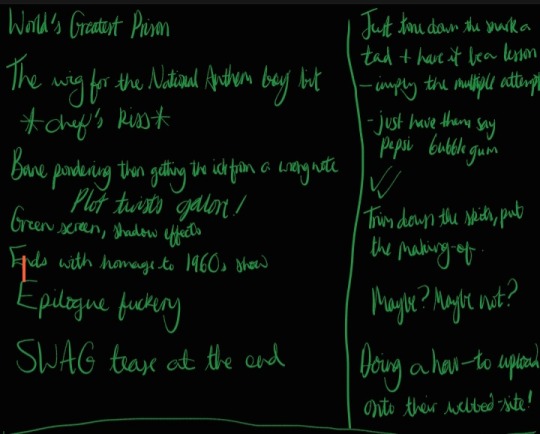 World's Greatest Prison
The wig for the National Anthem boy but
*chef's kiss*
Bane pondering then getting the ich from a wrong note
Plot twists galore!
Green screen, shadow effects
Ends with homage to 1960s show
Epilogue fuckery
SWAG tease at the end
Just tone down the snark a
tad + have it be a lesson
- imply the multiple attempt
- just have them say
pepsi bubble gum
Trim down the skits, put
the making-of.
Maybe? Maybe not?
Doing a how-to upload
onto their webbed-site!